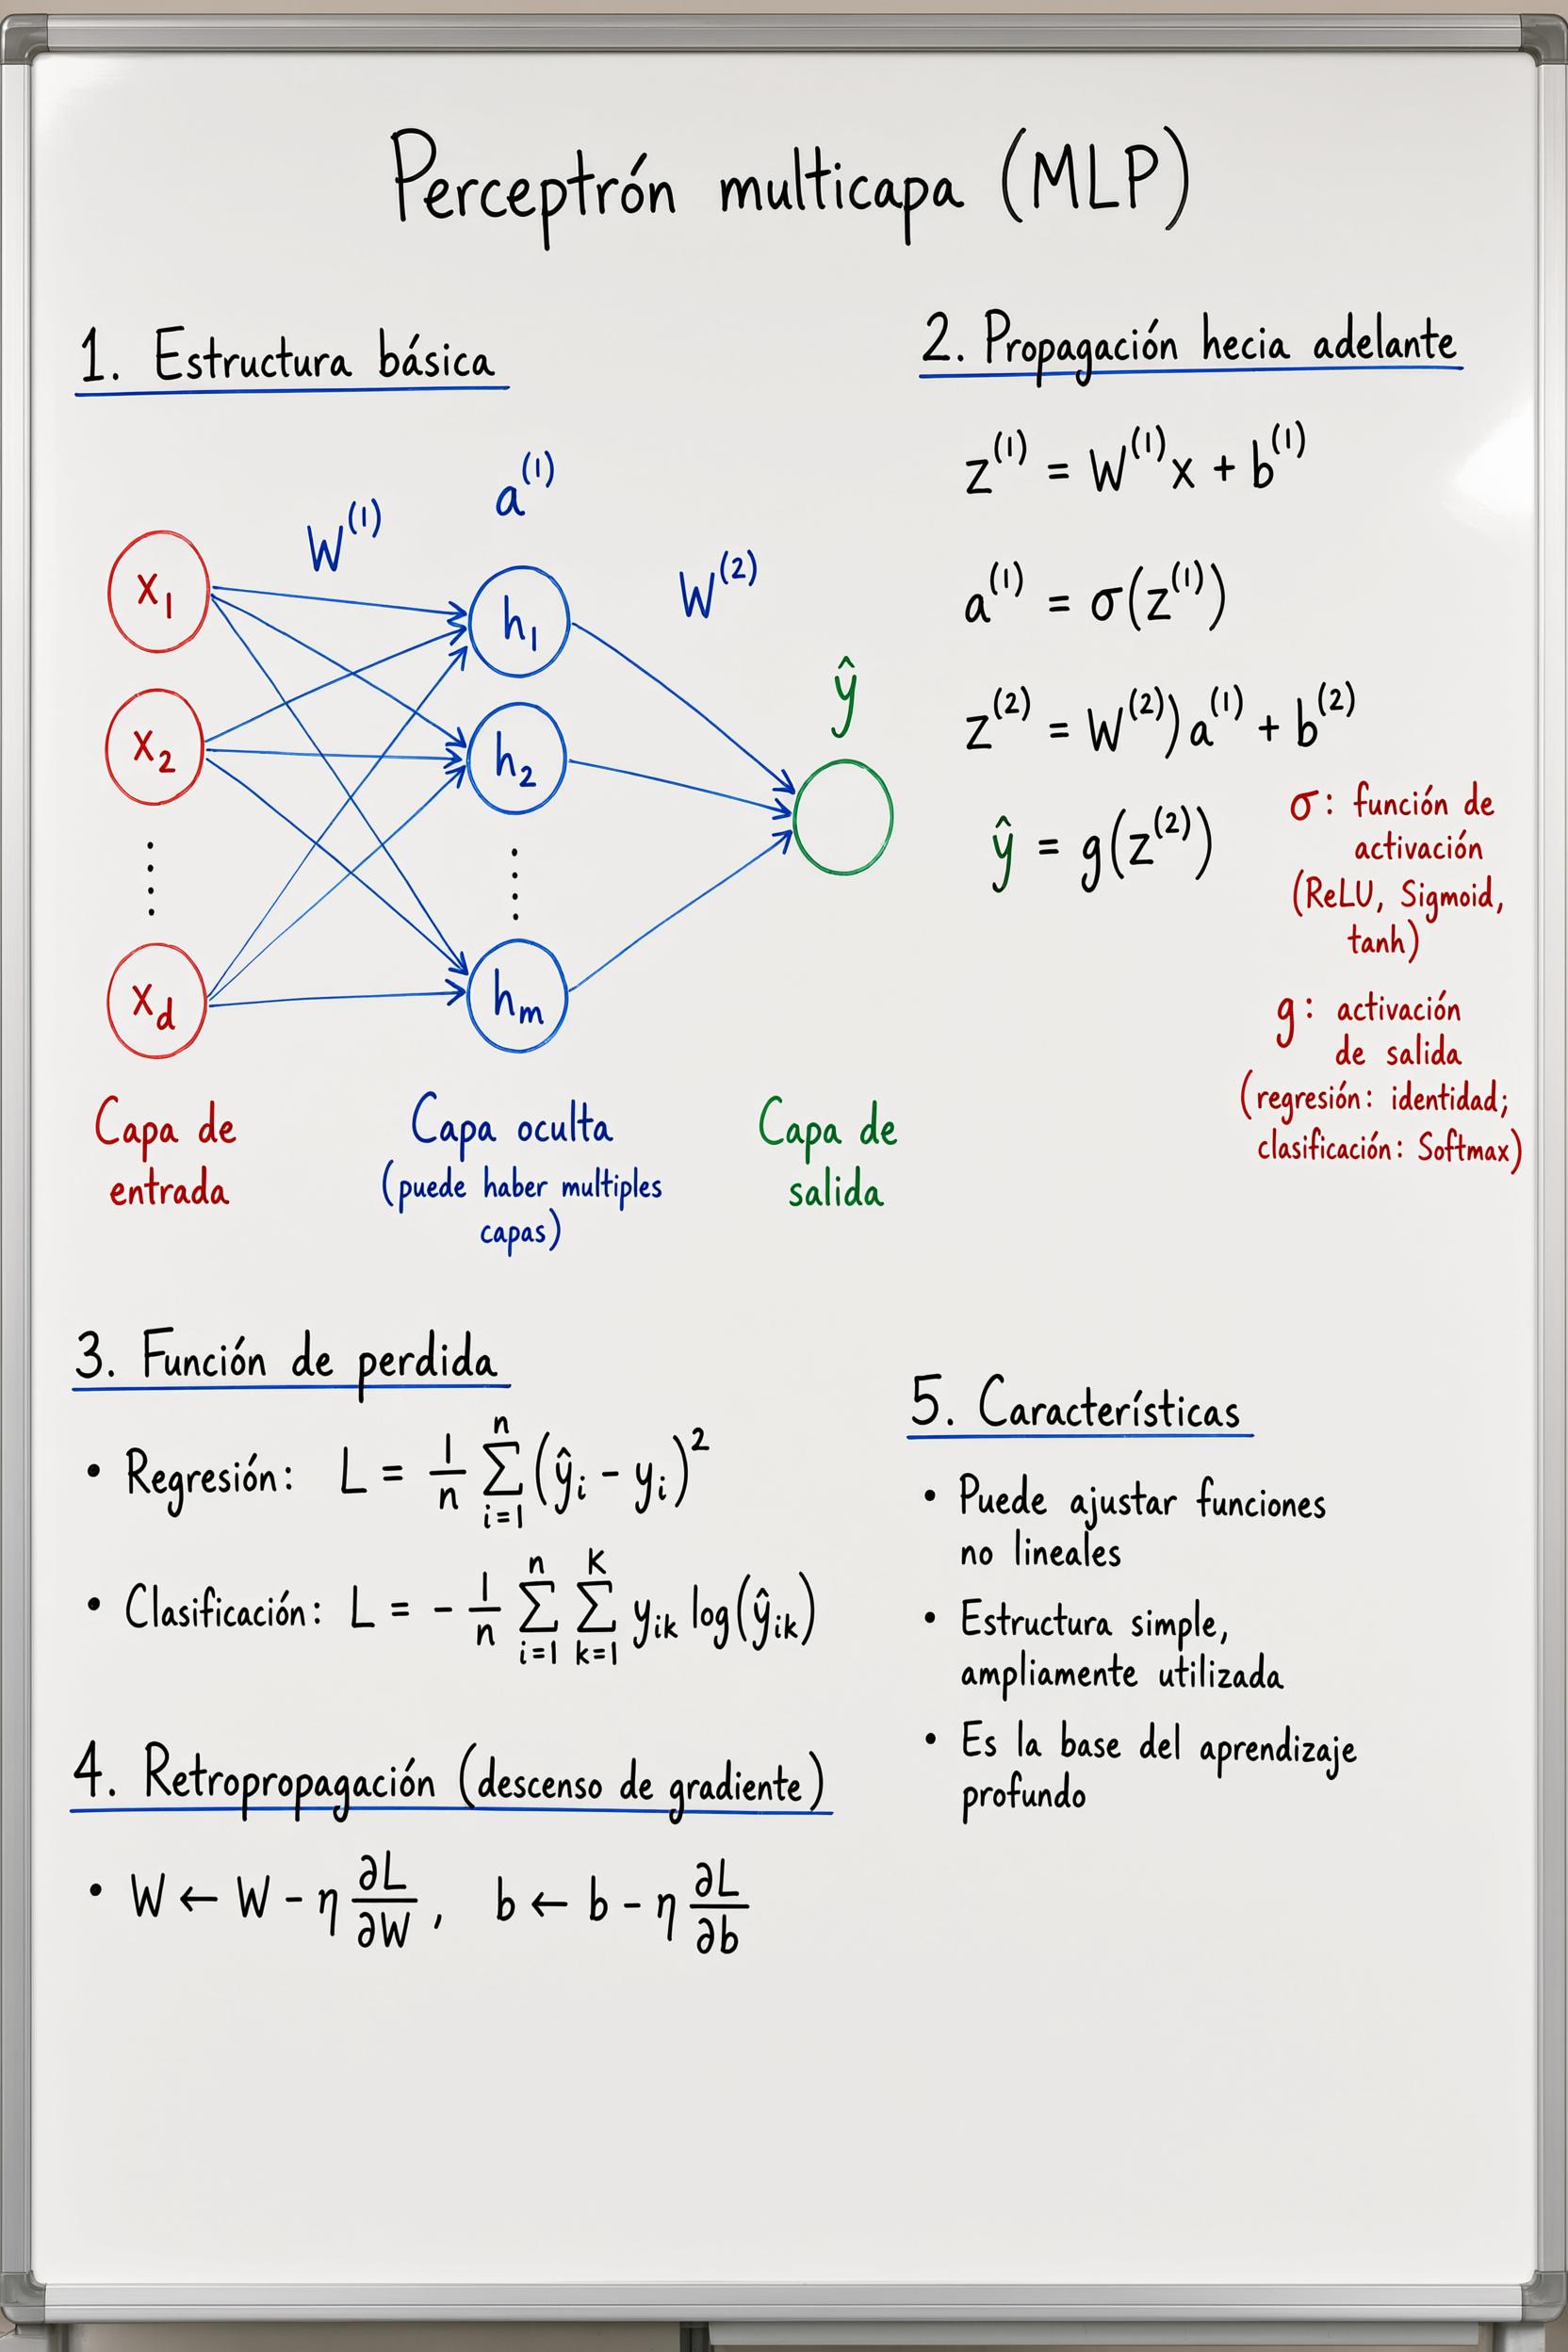 Perceptrón multicapa (MLP)
1. Estructura básica
W^(1)
a^(1)
W^(2)
ŷ
x₁
x₂
x_d
h₁
h₂
h_m
Capa de
entrada
Capa oculta
(puede haber multiples
capas)
Capa de
salida
2. Propagación hecia adelante
z^(1) = W^(1)x + b^(1)
a^(1) = σ(z^(1))
z^(2) = W^(2))a^(1) + b^(2)
ŷ = g(z^(2))
σ: función de
activación
(ReLU, Sigmoid,
tanh)
g: activación
de salida
(regresión: identidad;
clasificación: Softmax)
3. Función de perdida
• Regresión: L = 1/n ∑_{i=1}^{n} (ŷ_i - y_i)^2
• Clasificación: L = - 1/n ∑_{i=1}^{n} ∑_{k=1}^{K} y_ik log(ŷ_ik)
4. Retropropagación (descenso de gradiente)
• W ← W - η ∂L/∂W, b ← b - η ∂L/∂b
5. Características
• Puede ajustar funciones
no lineales
• Estructura simple,
ampliamente utilizada
• Es la base del aprendizaje
profundo